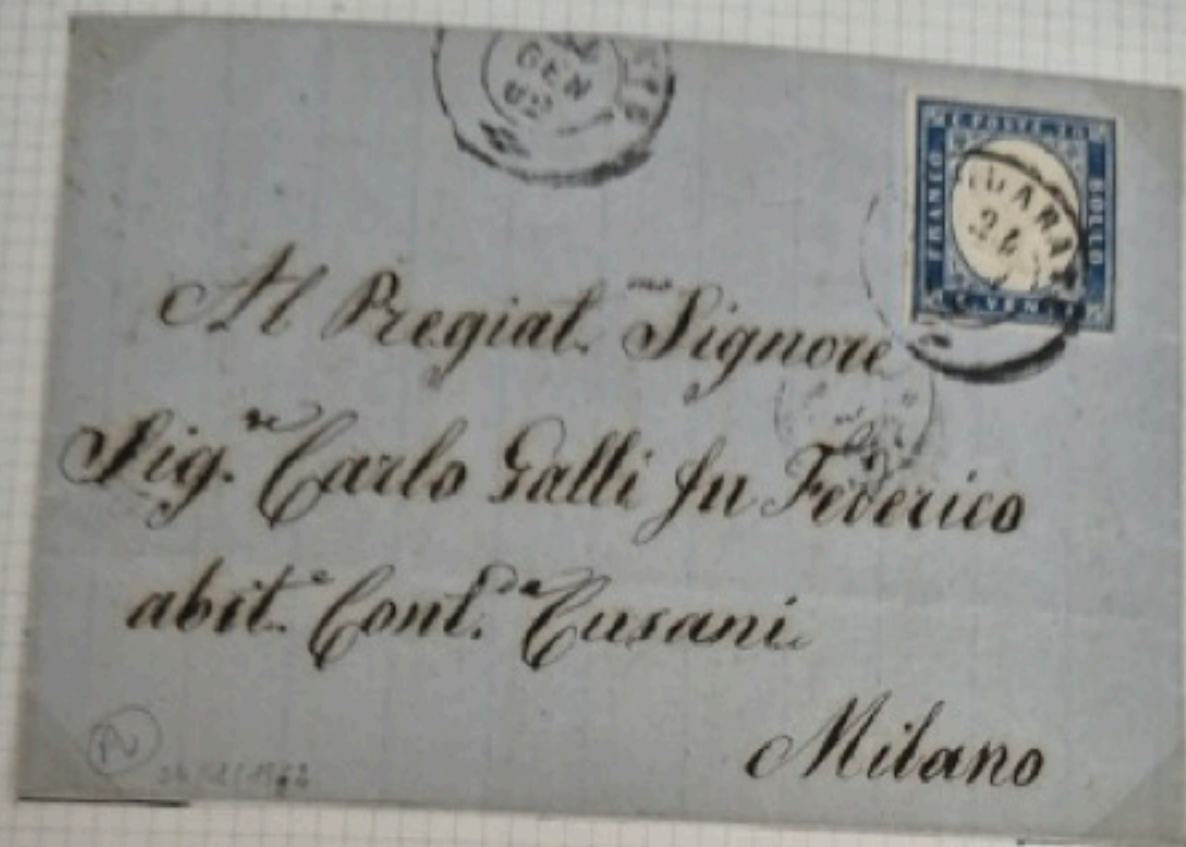 GEN
C. POSTE 20
FRANCO
BOLLO
24
C. VEN. I
Al Pregiat.mo Signore
Sig.re Carlo Galli fu Federico
abit.e Cont.da Cusani
Milano